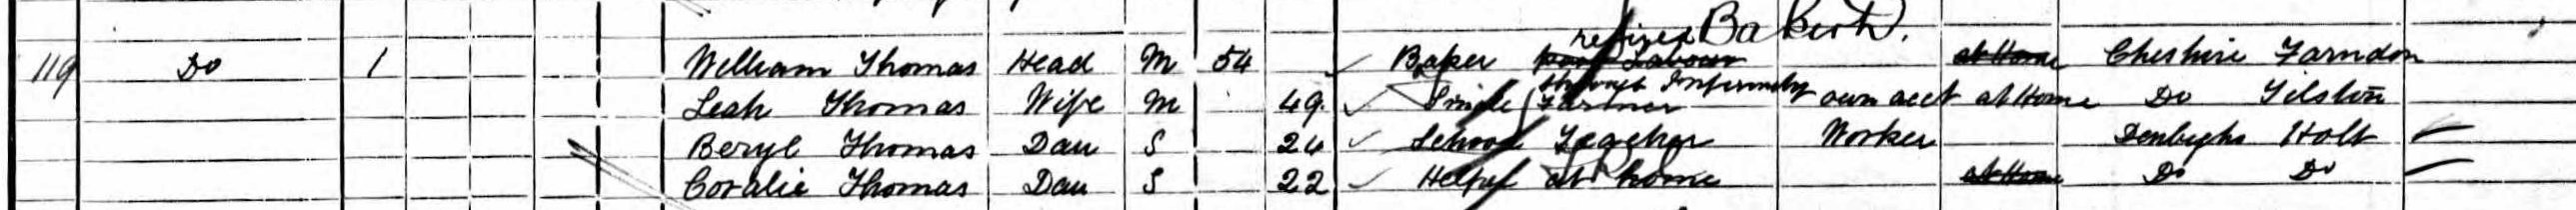 retired Baker R.
119 Do 1 William Thomas Head M 54 Baker Cheshire Farndon
through Infirmity
Leah Thomas Wife M 49 Farmer own acct at Home Do Tilston
Beryl Thomas Dau S 24 School Teacher Worker Denbighs Holt
Coralie Thomas Dau S 22 Help at home at Home Do Do